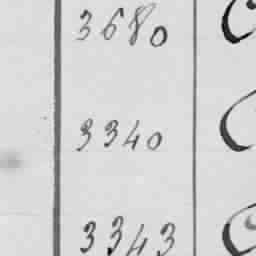 3680
3340
3343